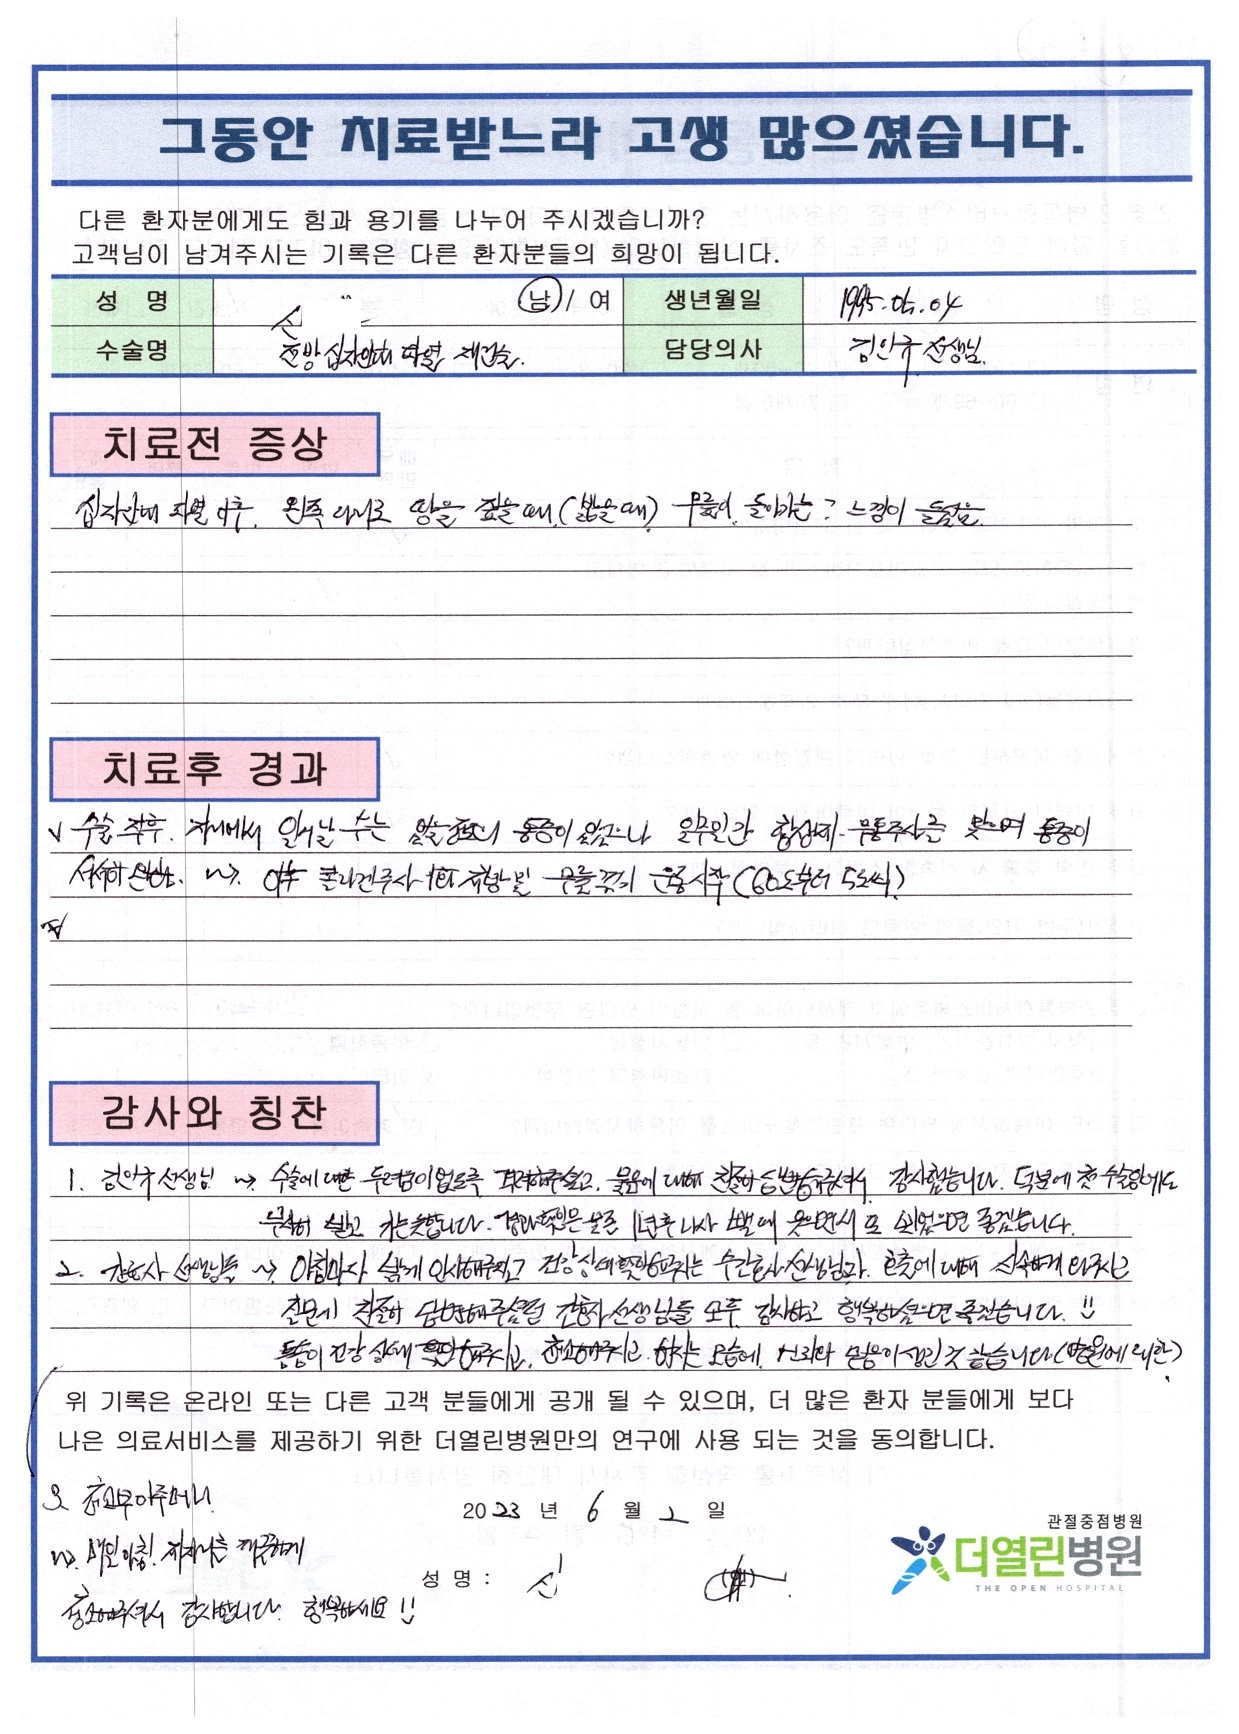 그동안 치료받느라 고생 많으셨습니다.
다른 환자분에게도 힘과 용기를 나누어 주시겠습니까?
고객님이 남겨주시는 기록은 다른 환자분들의 희망이 됩니다.
성 명 신 남 / 여 생년월일 1995.04.04
수술명 전방십자인대 파열 재건술. 담당의사 김인규 선생님.
치료전 증상
십자인대 파열 이후, 왼쪽 다리로 땅을 짚을때,(밟을때) 무릎이 돌아가는? 느낌이 들었음.
치료후 경과
v 수술 직후. 자리에서 일어날 수는 없을 정도의 통증이 있었으나 일주일간 항생제. 무통주사를 맞으며 통증이
서서히 완화. ~> 이후 콜라겐주사 처방 및 무릎꺾기 운동시작 (60도부터 5도씩)
감사와 칭찬
1. 김인규 선생님 ~> 수술에 대한 두려움이 없도록 격려해주셨고, 물음에 대해 친절히 답변해주셔서, 감사했습니다. 덕분에 첫 수술임에도
무사히 하고 가는듯합니다. 1년후 나사 뺄 때 웃으면서 또 뵈었으면 좋겠습니다.
2. 간호사 선생님들 ~> 아침마다 밝게 인사해주시고 건강상태 확인해주시는 수간호사 선생님과, 호출에 대해 신속하게 와주시고
질문에 친절히 답변해주셨던 간호사 선생님들 모두 감사하고 행복하셨으면 좋겠습니다. !!
통증이 건강 상태 확인해주시고, 하시는 모습에, 신뢰와 믿음이 생긴 것 같습니다 (병원에 대한)
위 기록은 온라인 또는 다른 고객 분들에게 공개 될 수 있으며, 더 많은 환자 분들에게 보다
나은 의료서비스를 제공하기 위한 더열린병원만의 연구에 사용 되는 것을 동의합니다.
3. 청소부 아주머니.
~>. 매일 아침. 자리를 깨끗하게
청소해주셔서 감사합니다. 행복하세요 !!
2023 년 6 월 2 일
성 명 : 신
관절중점병원
더열린병원
THE OPEN HOSPITAL